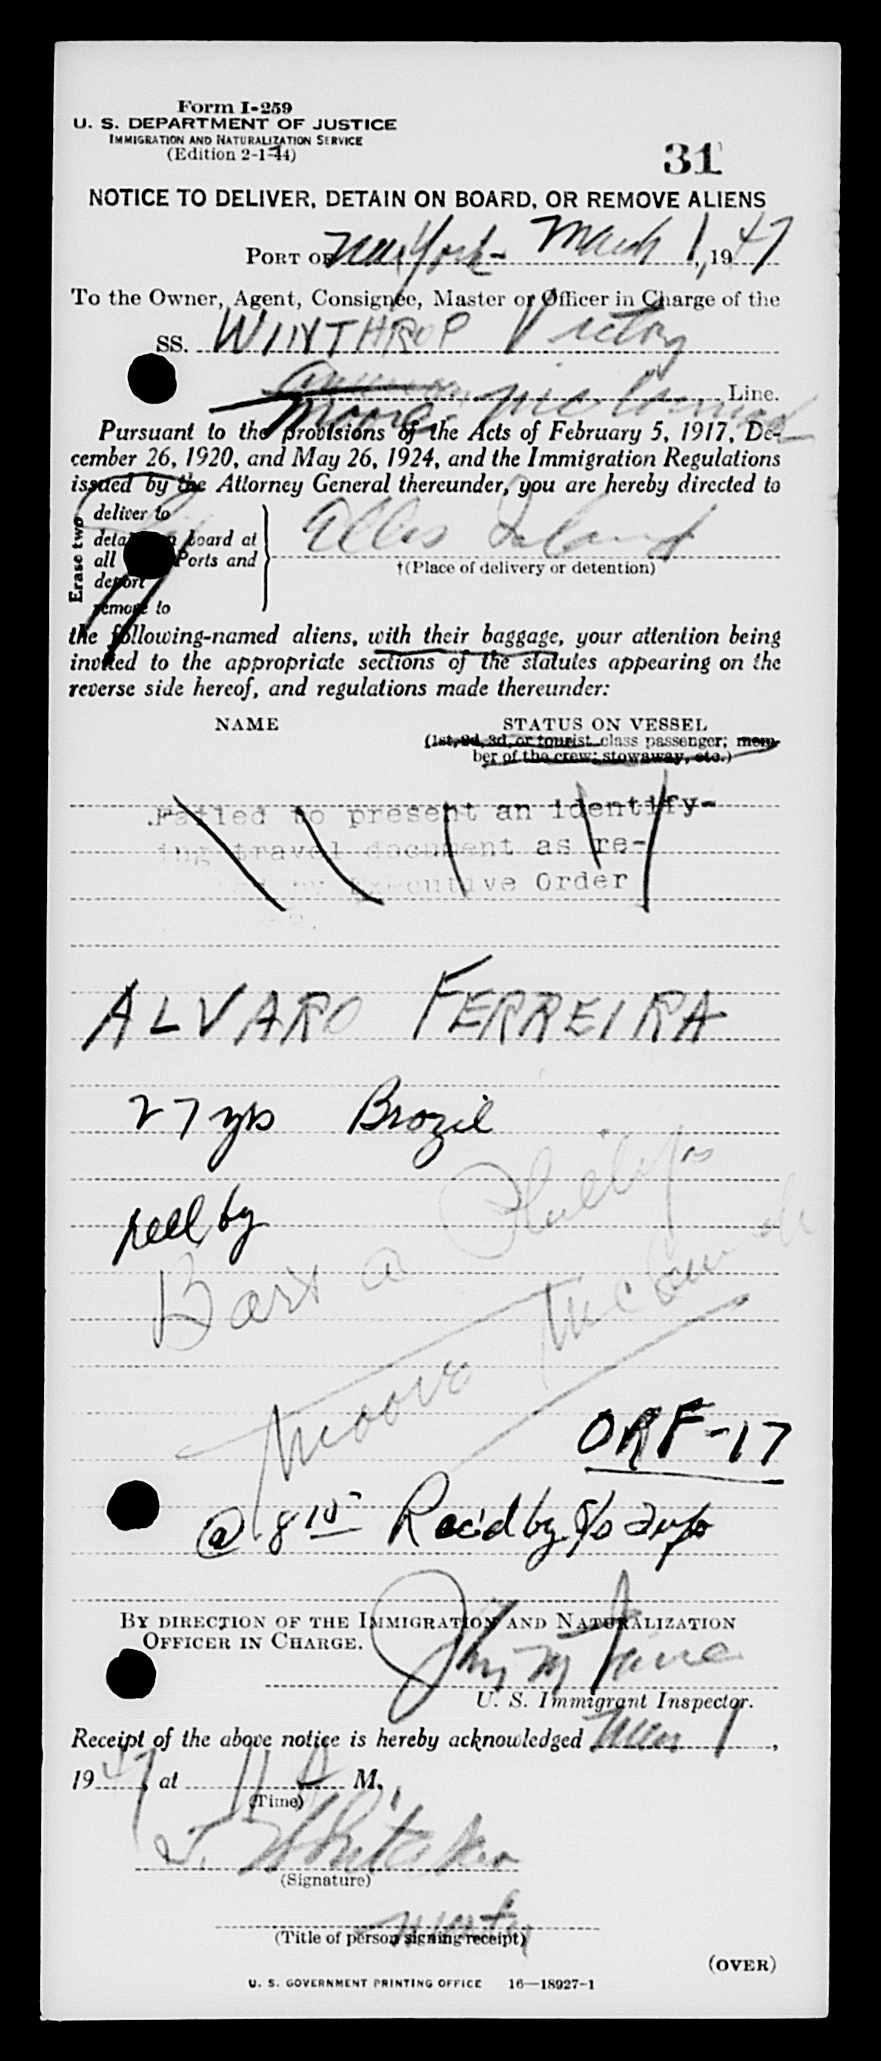 Form I-259
U. S. DEPARTMENT OF JUSTICE
IMMIGRATION AND NATURALIZATION SERVICE
(Edition 2-1-44)
31
NOTICE TO DELIVER, DETAIN ON BOARD, OR REMOVE ALIENS
PORT OF New York - March 1, 1947
To the Owner, Agent, Consignee, Master or Officer in Charge of the
SS. WINTHROP Victory
Line.
Moore McCormack
Pursuant to the provisions of the Acts of February 5, 1917, De-
cember 26, 1920, and May 26, 1924, and the Immigration Regulations
issued by the Attorney General thereunder, you are hereby directed to
Erase two
deliver to
detain on board at
all Ports and
deport
remove to
Ellis Island
†(Place of delivery or detention)
the following-named aliens, with their baggage, your attention being
invited to the appropriate sections of the statutes appearing on the
reverse side hereof, and regulations made thereunder:
NAME STATUS ON VESSEL
(1st, 2d, 3d, or tourist class passenger; mem-
ber of the crew; stowaway, etc.)
Failed to present an identify-
ing travel document as re-
by Executive Order
ALVARO FERREIRA
27 yrs Brazil
by
Bart a Phillips
Moore McCormack
ORF-17
@ 8 10 Rec'd by
BY DIRECTION OF THE IMMIGRATION AND NATURALIZATION
OFFICER IN CHARGE.
U. S. Immigrant Inspector.
Receipt of the above notice is hereby acknowledged Mar 1,
1947, at 11 A M.
(Time)
J. Whitaker
(Signature)
(Title of person signing receipt)
(OVER)
U. S. GOVERNMENT PRINTING OFFICE 16—18927-1